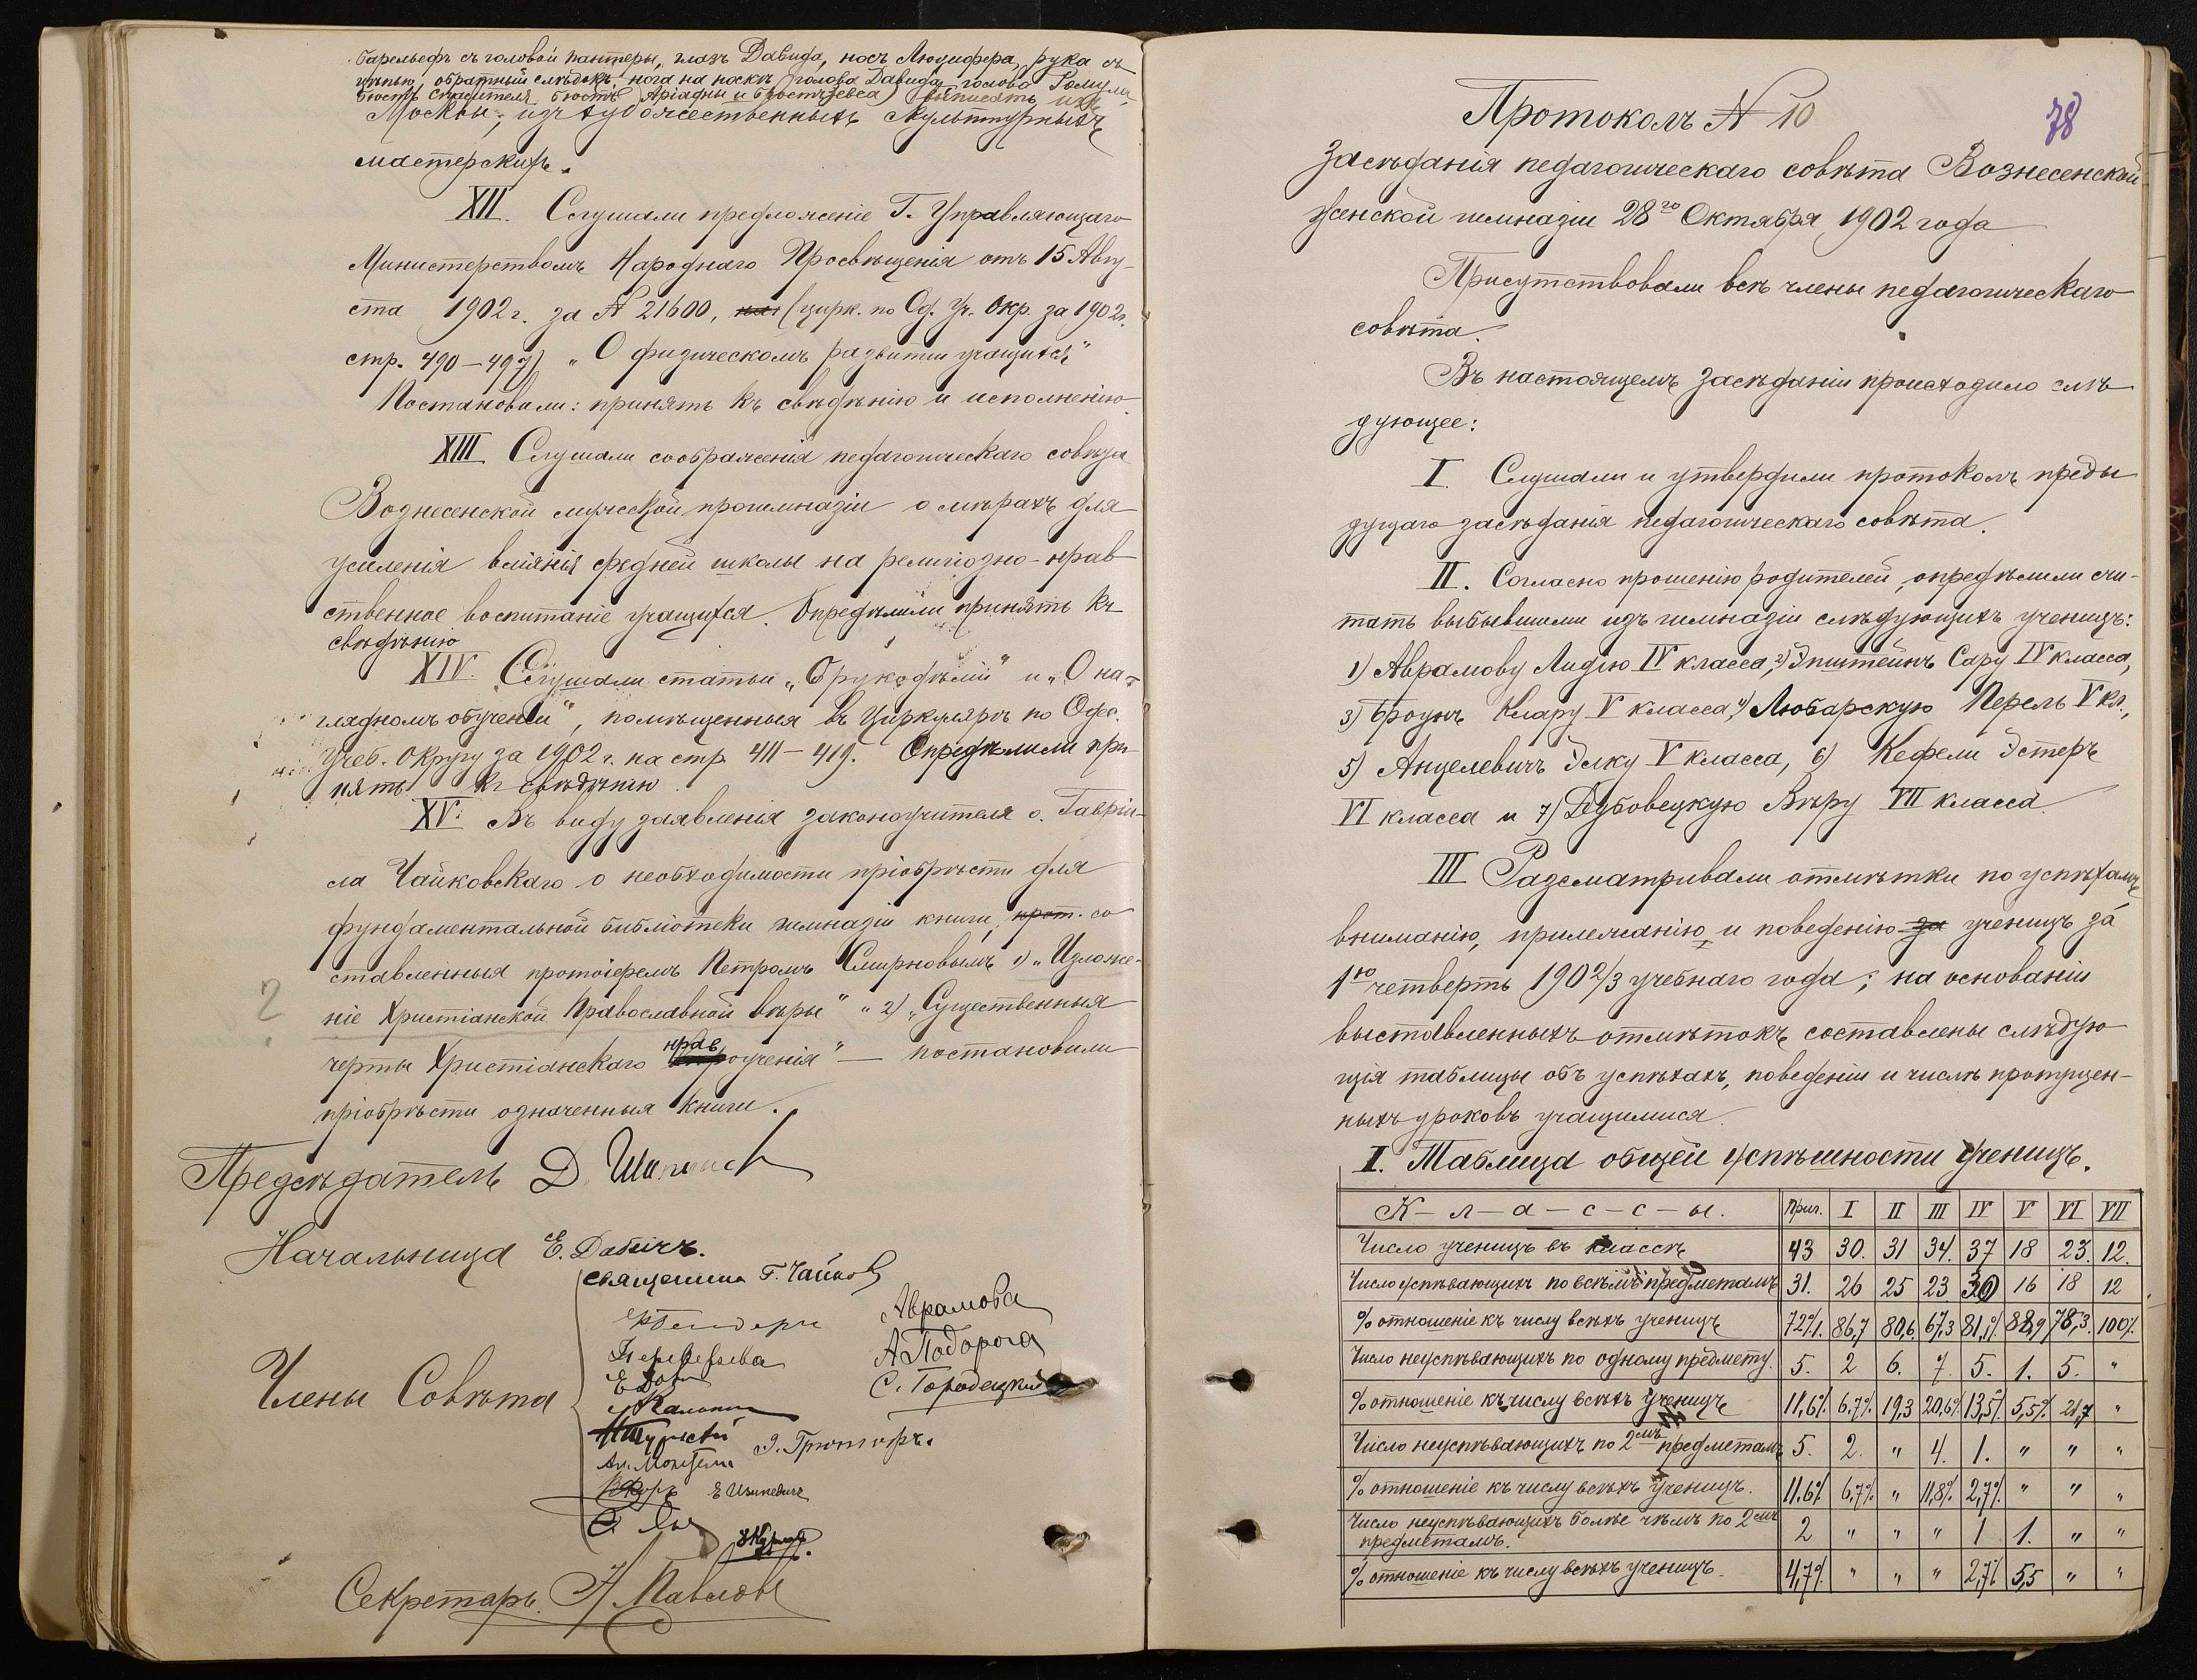 барельефъ съ головой пантеры, глазъ Давида, носъ Люцифера, рука съ
цѣпью, обратный слѣдокъ, нога на носкѣ, голова Давида, голова Ромула,
бюстъ Спасителя, бюстъ Аріадны и бюстъ Зевса) выписать изъ
Москвы, изъ художественныхъ скульптурныхъ
мастерскихъ.
XII. Слушали предложеніе Г. Управляющаго
Министерствомъ Народнаго Просвѣщенія отъ 15 Авгу-
ста 1902 г. за № 21600, (цирк. по Од. Уч. Окр. за 1902 г.
стр. 490–497) „О физическомъ развитіи учащихся"
Постановили: принять къ свѣдѣнію и исполненію.
XIII Слушали соображенія педагогическаго совѣта
Вознесенской мужской прогимназіи о мѣрахъ для
усиленія вліянія средней школы на религіозно-нрав
ственное воспитаніе учащихся. Опредѣлили принять къ
свѣдѣнію
XIV. Слушали статьи „О рукодѣліи" и „О на-
глядномъ обученіи", помѣщенныя въ Циркулярѣ по Одес.
Учеб. Округу за 1902 г. на стр. 411–419. Опредѣлили при-
нять къ свѣдѣнію.
XV. Въ виду заявленія законоучителя о. Гавріи-
ла Чайковскаго о необходимости пріобрѣсти для
фундаментальной библіотеки гимназіи книги, прот. со
ставленныя протоіереемъ Петромъ Смирновымъ 1) „Изложе-
ніе Христіанской Православной вѣры" „ 2) „Существенныя
черты Христіанскаго нравоученія" — постановили
пріобрѣсти означенныя книги.
?
Предсѣдатель Д.
Начальница Е.
Священникъ Г. Чайков
Аврамова
А Подорога
С. Городецкій
Члены Совѣта
Е Изикевичъ
Секретарь. А. Павловъ
78
Протоколъ № 10
Засѣданія педагогическаго совѣта Вознесенской
женской гимназіи 28го Октября 1902 года
Присутствовали всѣ члены педагогическаго
совѣта.
Въ настоящемъ засѣданіи происходило слѣ
дующее:
I. Слушали и утвердили протоколъ преды
дущаго засѣданія педагогическаго совѣта.
II. Согласно прошенію родителей, опредѣлили счи-
тать выбывшими изъ гимназіи слѣдующихъ ученицъ:
1) Аврамову Лидію IV класса, 2) Эпштейнъ Сару IV класса,
3) Броунъ Клару V класса, 4) Любарскую Перель V кл.,
5) Анцелевичъ Элку V класса, 6) Кефели Эстеръ
VI класса и 7) Дубовецкую Вѣру VII класса.
III Разсматривали отмѣтки по успѣхамъ,
вниманію, прилежанію и поведенію за ученицъ за
1ую четверть 1902/3 учебнаго года; на основаніи
выставленныхъ отмѣтокъ составлены слѣдую
щія таблицы объ успѣхахъ, поведеніи и числѣ пропущен-
ныхъ уроковъ учащимися.
I. Таблица общей успѣшности ученицъ.
К–л–а–с–с–ы. Приг. I II III IV V VI VII
Число ученицъ въ классѣ 43 30. 31 34. 37 18 23. 12.
Число успѣвающихъ по всѣмъ предметамъ 31. 26 25 23 30 16 18 12
% отношеніе къ числу всѣхъ ученицъ 72%. 86,7 80,6 67,3 81,1% 88,9 78,3 100%
Число неуспѣвающихъ по одному предмету. 5. 2 6. 7. 5. 1. 5. "
% отношеніе къ числу всѣхъ ученицъ 11,6% 6,7% 19,3 20,6% 13,5% 5,5% 21,7 "
Число неуспѣвающихъ по 2мъ предметамъ 5. 2. " 4. 1. " " "
% отношеніе къ числу всѣхъ ученицъ. 11.6% 6,7% " 11,8% 2,7% " " "
Число неуспѣвающихъ болѣе чѣмъ по 2мъ
предметамъ. 2 " " " 1 1. " "
% отношеніе къ числу всѣхъ ученицъ. 4,7% " " " 2,7% 5,5 " "